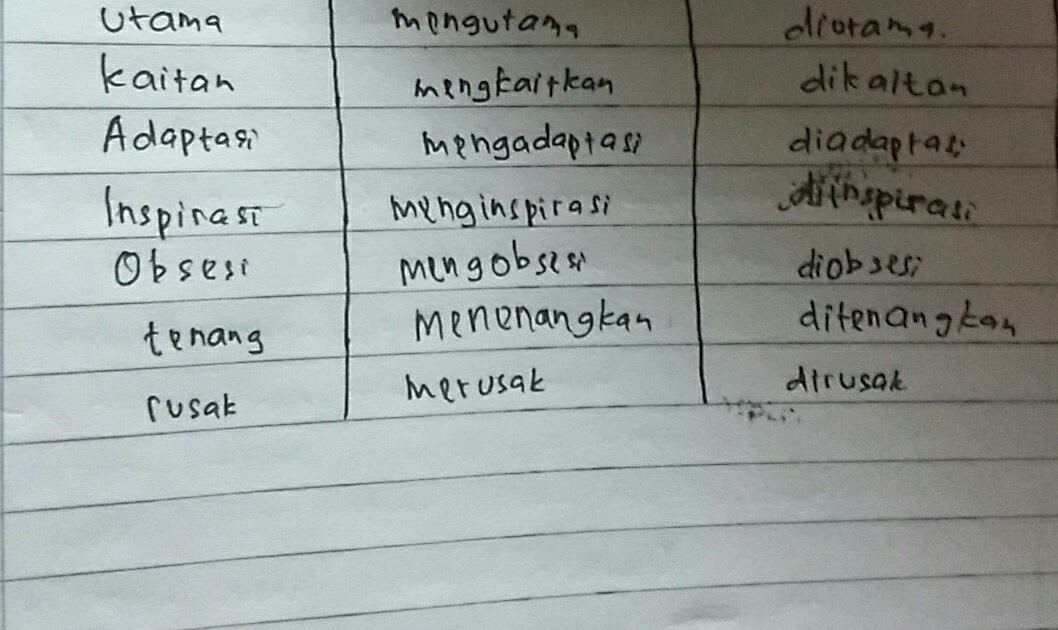 Utama mengutama diutama.
kaitan mengkaitkan dikaitan
Adaptasi mengadaptasi diadaptasi
Inspirasi menginspirasi diinspirasi
Obsesi mengobsesi diobsesi
tenang menenangkan ditenangkan
rusak merusak dirusak